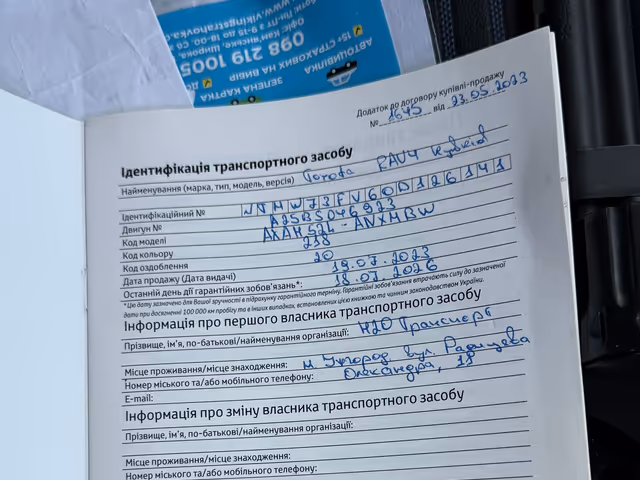 www.vikingstrahovka.
Офіс: Пн-Пт з 9-15 до 18-00. Сб
м. Кам'янське, Широка,
098 219 1005
15+ СТРАХОВИХ НА ВИБІР
АВТОЦИВІЛКА
ЗЕЛЕНА КАРТКА
Додаток до договору купівлі-продажу
№ 1645 від 23.05.2023
Ідентифікація транспортного засобу
Найменування (марка, тип, модель, версія) Toyota RAV4 Hybrid
Ідентифікаційний № JTMW73FV60D126141
Двигун № A25B5046923
Код моделі AXAH52L-ANXMBW
Код кольору 218
Код оздоблення 20
Дата продажу (Дата видачі) 19.07.2023
Останній день дії гарантійних зобов'язань*: 18.07.2026
*Цю дату зазначено для Вашої зручності в підрахунку гарантійного терміну. Гарантійні зобов'язання втрачають силу до зазначеної
дати при досягненні 100 000 км пробігу та в інших випадках, встановлених цією книжкою та чинним законодавством України.
Інформація про першого власника транспортного засобу
Прізвище, ім'я, по-батькові/найменування організації: Н2О Транспорт
Місце проживання/місце знаходження: м. Ужгород вул. Радищева
Номер міського та/або мобільного телефону: Олександра, 18
E-mail:
Інформація про зміну власника транспортного засобу
Прізвище, ім'я, по-батькові/найменування організації:
Місце проживання/місце знаходження:
Номер міського та/або мобільного телефону: